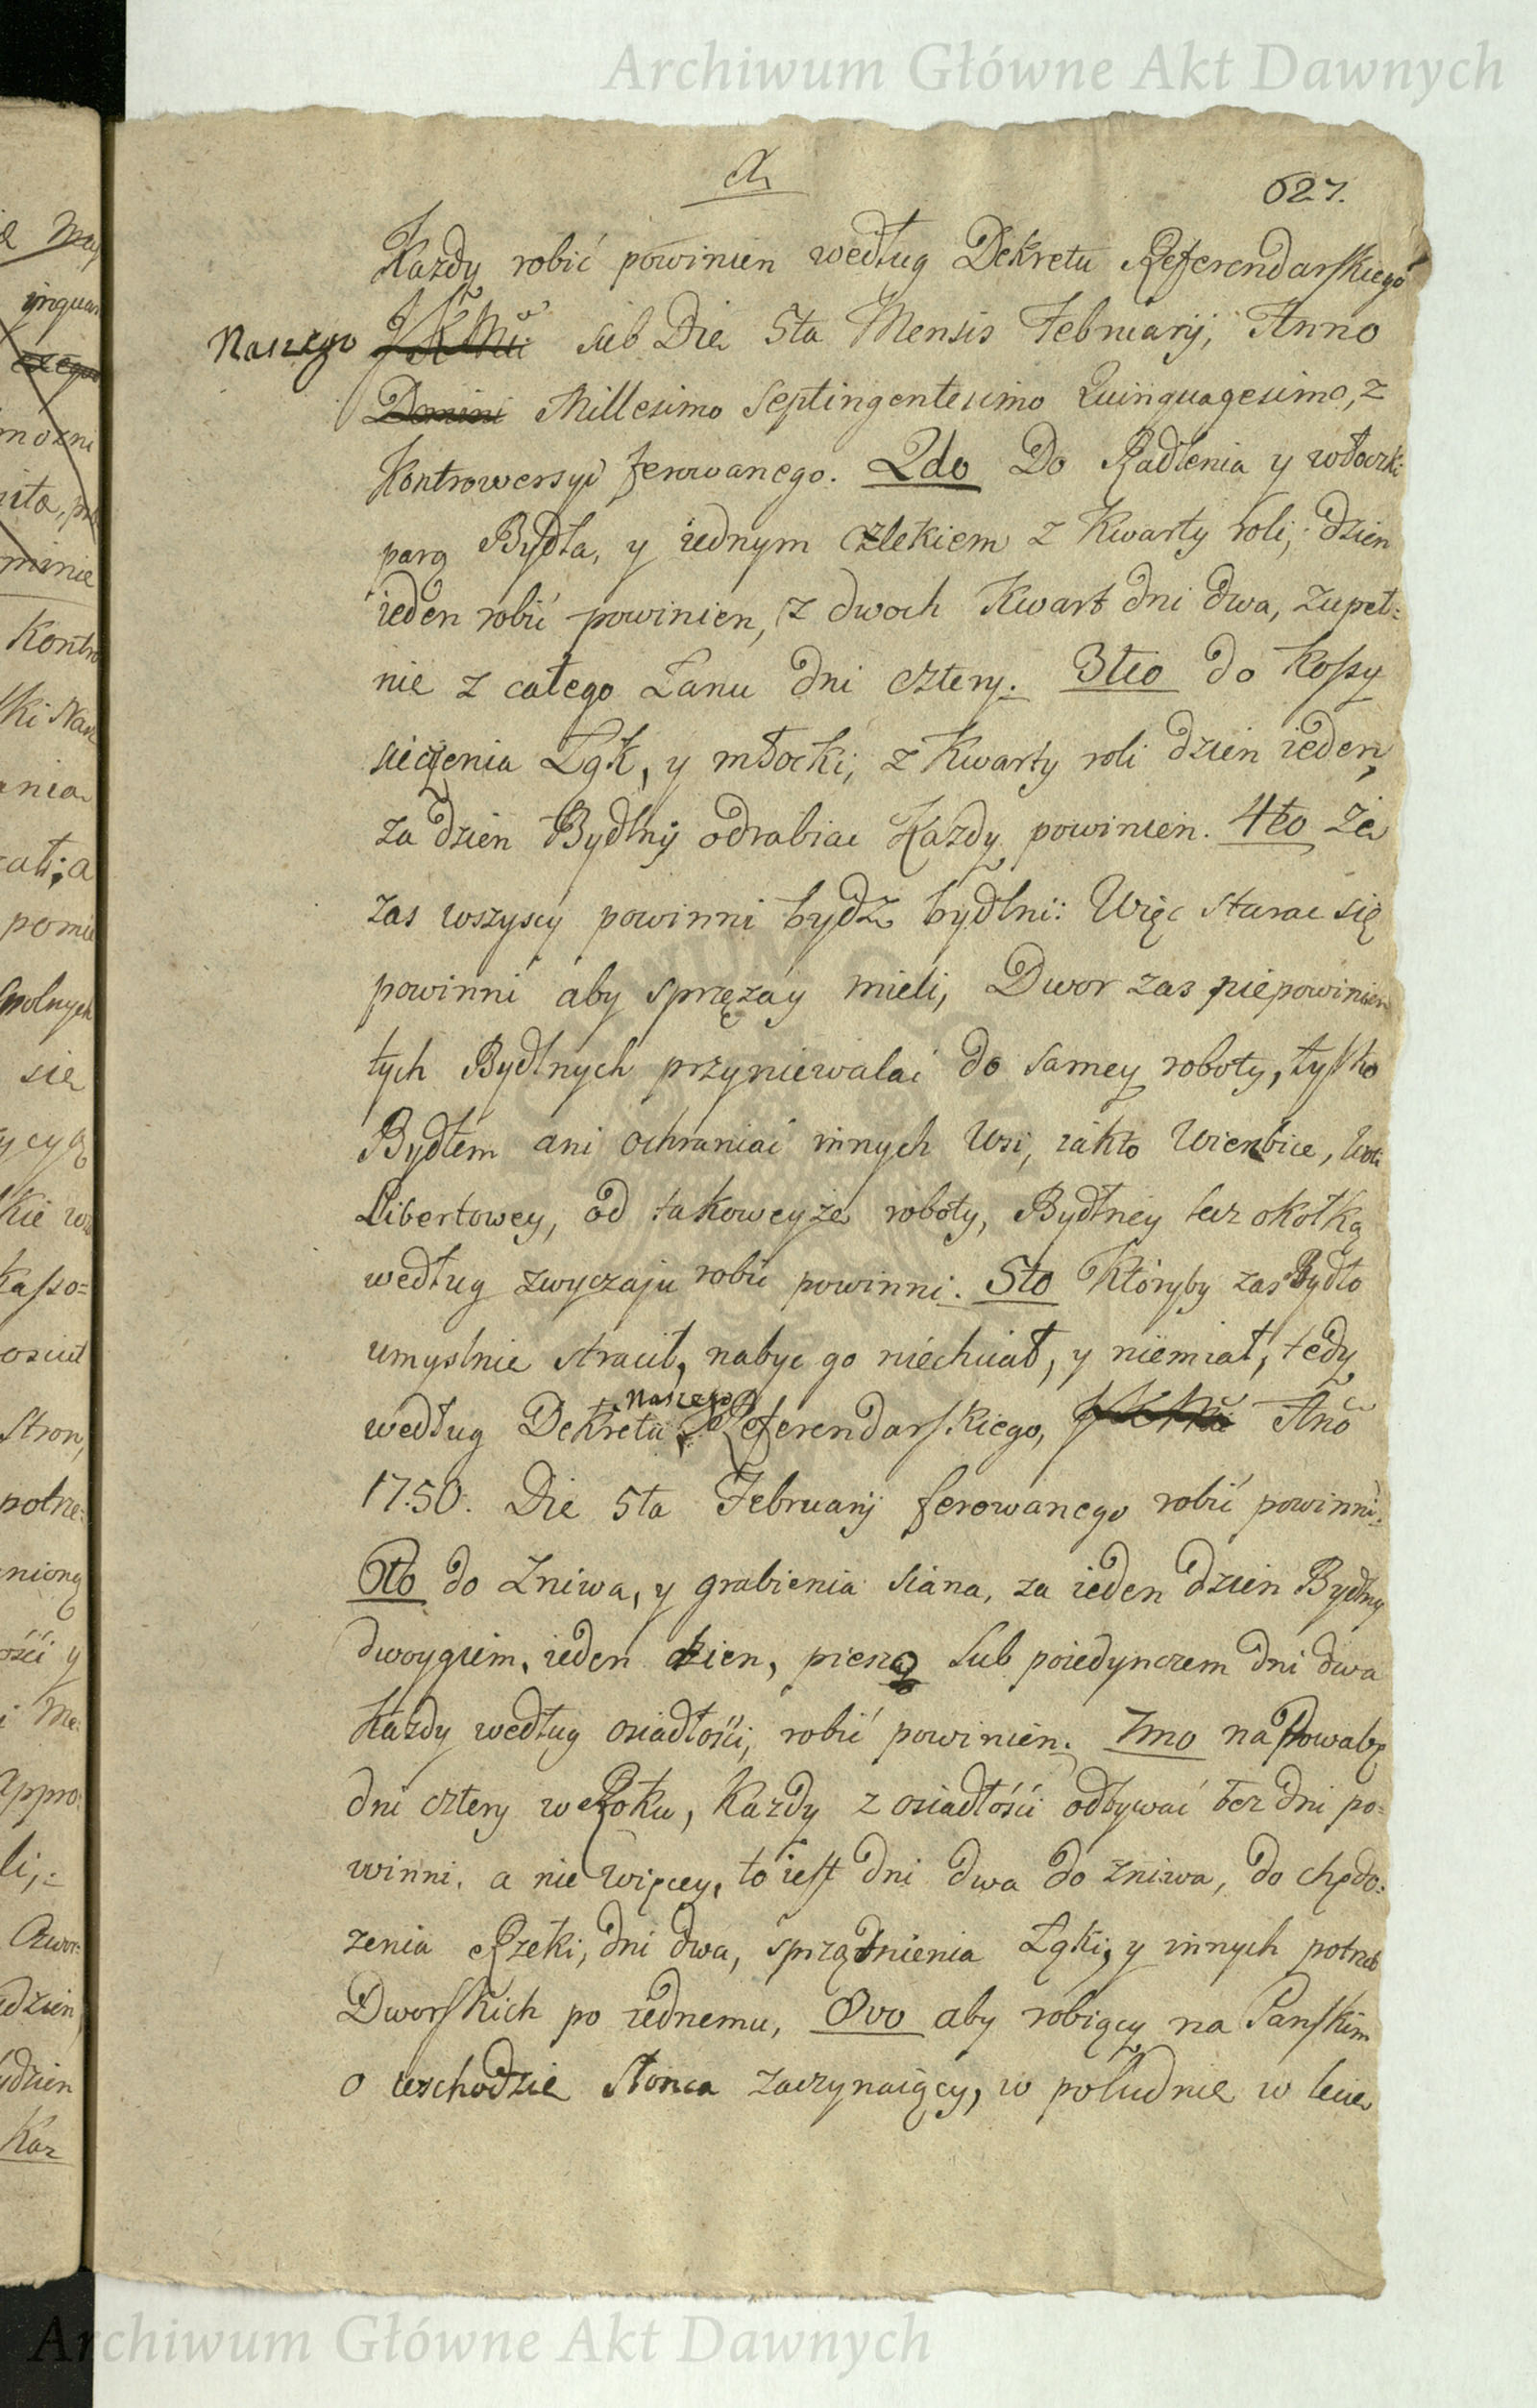 Archiwum Główne Akt Dawnych
627.
Kazdy robić powinien według Dekretu Referendarskiego
Naszego JKMci sub Die 5ta Mensis Februarij, Anno
Domini Millesimo Septingentesimo Quinquagesimo, z
Kontrowersyi ferowanego. 2do Do Radlenia y włoczki
parą Bydła, y iednym człekiem z Kwarty roli, dzien
ieden robić powinien, z dwoch Kwart dni dwa, zupeł-
nie z całego Łanu dni cztery. 3tio do Kossy
sieczenia Łąk, y młocki, z Kwarty roli dzien ieden,
za dzien Bydlny odrabiac Kazdy powinien. 4to Że
zas wszyscy powinni bydz bydlni: Więc starac się
powinni aby sprzęzay mieli, Dwor zas niepowinien
tych Bydlnych przyniewalać do samey roboty, tylko
Bydłem ani ochraniać innych Wsi, iakto Wierbice, Woli
Libertowey, od takoweyże roboty, Bydlney lecz okołką
według zwyczaju robić powinni. 5to Któryby zas Bydło
umyslnie stracił, nabyc go niechciał, y niemiał, tedy
według Dekretu Naszego Referendarskiego, JKMci Anõ
1750. Die 5ta Februarij ferowanego robić powinni.
6to do Zniwa, y grabienia siana, za ieden dzien Bydlny
dwoygiem, ieden dzien, pieszo lub poiedynczem dni dwa
Kazdy według osiadłości, robić powinien. 7mo na Powabę
dni cztery w Roku, Kazdy z osiadłości odbywać tez dni po-
winni, a nie więcey, to iest dni dwa do zniwa, do chędo-
zenia Rzeki, dni dwa, sprzątnienia Łąki, y innych potrzeb
Dworskich po iednemu, 8vo aby robiący na Panskim
o wschodzie Słonca zaczynaiący, w południe w lecie
Archiwum Główne Akt Dawnych